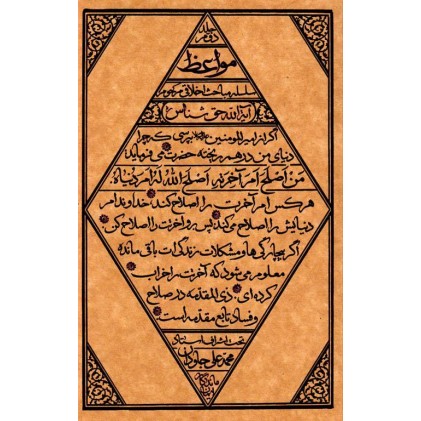 جلد دوم
مواعظ
سلسله مباحث اخلاقی مرحوم
آیة الله حق شناس
اگر از امیرالمومنین علیه‌السلام بپرسی که چرا
دنیای من درهم ریخته حضرت می فرماید
مَن اَصلَحَ اَمرَ آخِرَتِهِ، اَصلَحَ اللهُ لَهُ اَمرَ دُنیاهُ.
هر کس امر آخرت را اصلاح کند، خداوند امر
دنیایش را اصلاح می کند؛ پس برو آخرتت را اصلاح کن.
اگر بیچارگی ها و مشکلات زندگی ات باقی مانده
معلوم می شود که آخرتت را خراب
کرده ای. ذی المقدمه در صلاح
و فساد تابع مقدمه است.
تحت اشراف استاد
محمد علی جاودان